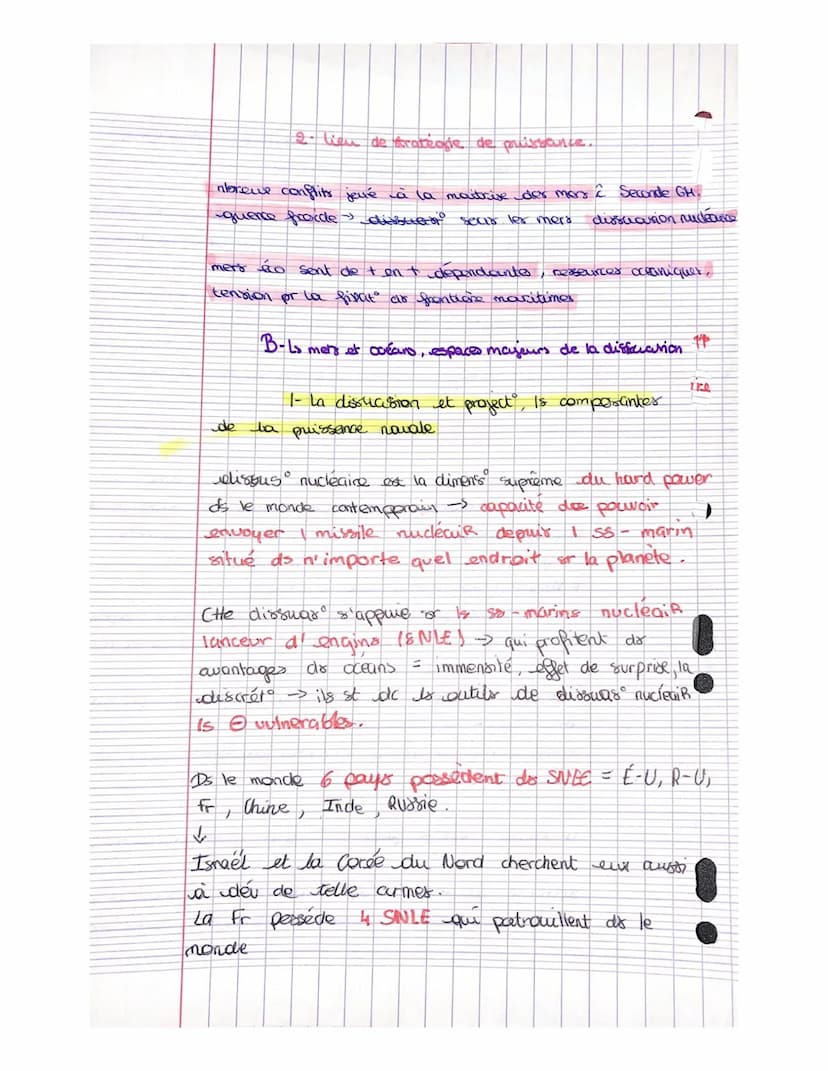 2- Lieu de stratégie de puissance.
nbreux conflits joué à la maitrise des mers Seconde GM.
guerre froide → sous les mers dissuasion nucléaire
mers sont de + en + dépendantes, ressources océaniques,
tension pr la fixat° ds frontière maritimes
B- Ls mers et océans, espaces majeurs de la dissuasion
1- La dissuasion et project°, ls composantes
de la puissance navale
dissuas° nucléaire est la dimens° suprême du hard power
ds le monde contemporain → capacité de pouvoir
envoyer 1 missile nucléaiR depuis 1 ss-marin
situé ds n'importe quel endroit sr la planète.
Ctte dissuas° s'appuie sr ls ss-marins nucléaiR
lanceur d'engins (SNLE) → qui profitent ds
avantages ds océans = immensité, effet de surprise, la
discrét° → ils st dc ls outils de dissuas° nucléaiR
ls ⊖ vulnerables.
Ds le monde 6 pays possèdent ds SNLE = É-U, R-U,
Fr, Chine, Inde, Russie.
↓
Israël et la Corée du Nord cherchent eux aussi
à dév de telle armes.
La Fr possède 4 SNLE qui patrouillent ds le
monde